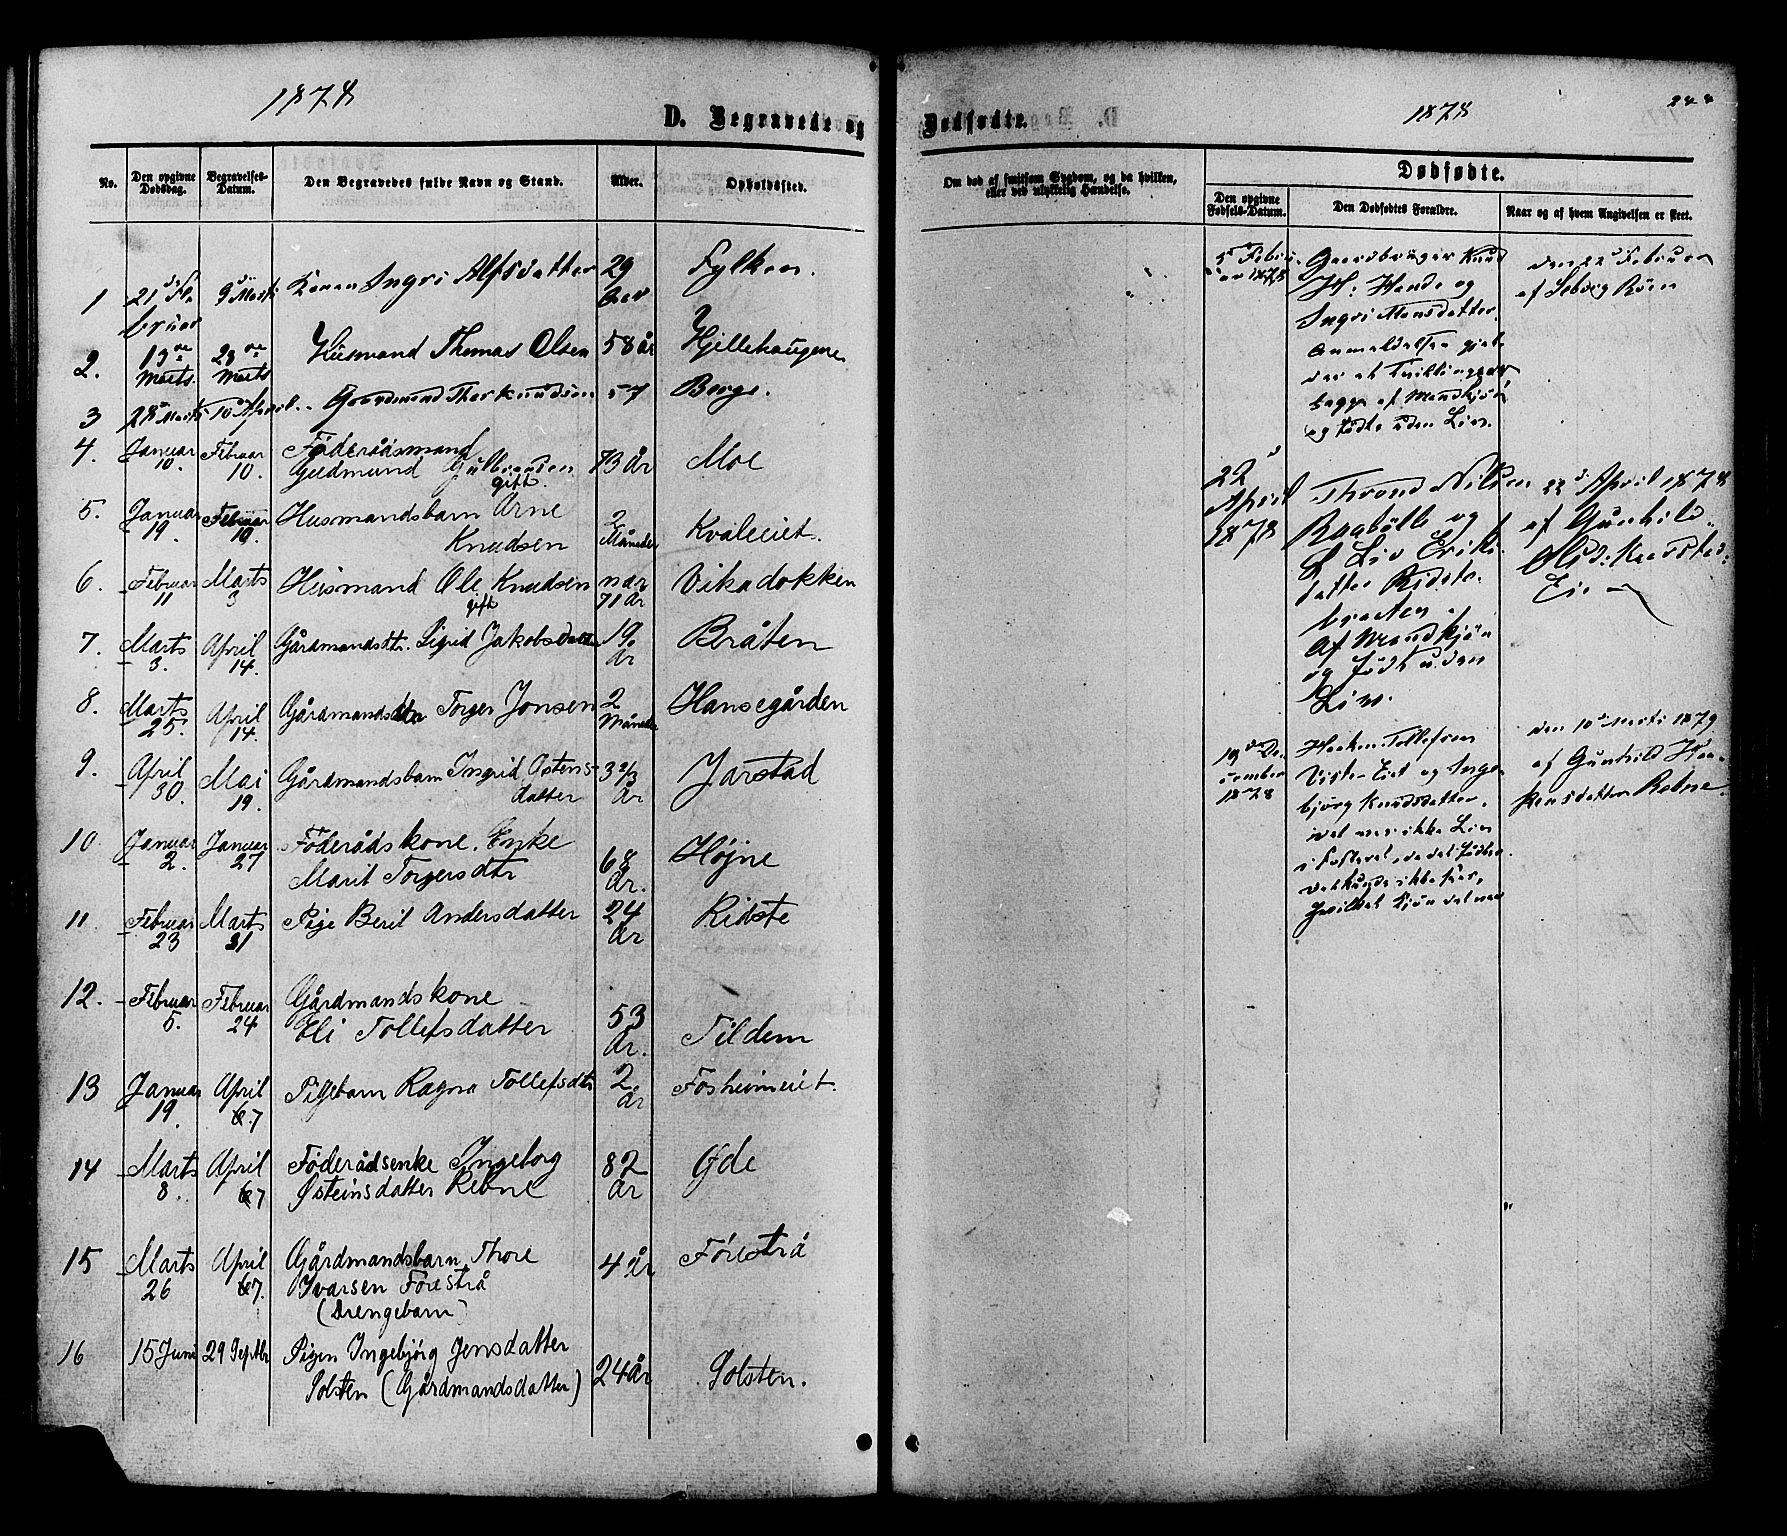 1878
D. Begravede og
No. Den opgivne Dødsdag. Begravelses-Datum. Den Begravedes fulde Navn og Stand. Alder. Opholdssted.
1 21 Februar 9 Marts Konen Ingri Alfsdatter 29 Aar Fylken.
2. 19de Marts 28de Marts Husmand Thomas Olsen 58 år Hjellehaugene
3 28 Marts 10 April Gaardmand Thor Knudsen 57 Berge.
4. Januar 10. Februar 10. Föderådsmand
Gudmund Gulbrandsen gift. 73 år Moe
5. Januar 19. Februar 10. Husmandsbarn Arne
Knudsen 2 Måneder Kvaleeiet.
6. Februar 11 Marts 3 Husmand Ole Knudsen gift nær 71 år Vikadokken
7. Marts 3. April 14. Gårdmandsdtr. Sigrid Jakobsdatter 19. år Bråten
8. Marts 25. April 14. Gårdmands Torger Jonsen 2 Måneder Hansegården
9. April 30. Mai 19. Gårdmandsbarn Ingrid Ostens-
datter 3 2/3 år Jarstad
10. Januar 2. Januar 27 Föderådskone. Enke
Marit Torgersdtr 68 År. Højne
11. Februar 23 Marts 31 Pige Berit Andersdatter 24 År Ridste
12. Februar 5. Februar 24 Gårdmandskone
Eli Tollefsdatter 53 År. Tildem
13 Januar 19. April 7 Pigebarn Ragna Tollefsdtr 2 År Fosheimeiet.
14 Marts 8. April 7 Föderådsenke Ingeborg
Østeinsdatter Rebne 82 År Øde
15 Marts 26 April 7. Gårdmandsbarn Thore
Ivarsen Forestrå
(Drengebarn) 4 År Førestrå
16 15 Juni 29 Septbr Pigen Ingebjörg Jensdatter
Solsten (Gårdmandsdatter) 24 år Solsten.
Dødfødte.
1878
Om død af smitsom Sygdom, og da hvilken,
eller ved ulykkelig Hændelse.
Dødfødte.
Den opgivne Fødsels-Datum. Den Dødfødtes Forældre. Naar og af hvem Angivelsen er skeet.
5 Febru-
ar 1878
Gaardbruger Knud
H. Hande og
Ingri Monsdatter.
Anmeldelsen gjæl-
der et Tvillingpar
begge af Mandkjön
og födte uden Liv.
den 22 Februar
af Solveig Röen
22
April
1878
Thrond Nilsen
Ragbölle og
Liv Eriks-
datter Ridste-
braaten
Af Mandkjön
og födt uden
Liv.
22 April 1878
af Gunhild
Eie
19 De-
cember
1878
Haaken Tollefsen
Viste Eiet og Inge-
björg Knudsdatter.
det var ikke Liv
i Fosteret, da det födtes
det kunde ikke sees,
hvilket Kjön det var
den 10 Marts 1879
af Gunhild Haa-
kensdatter Rebne.